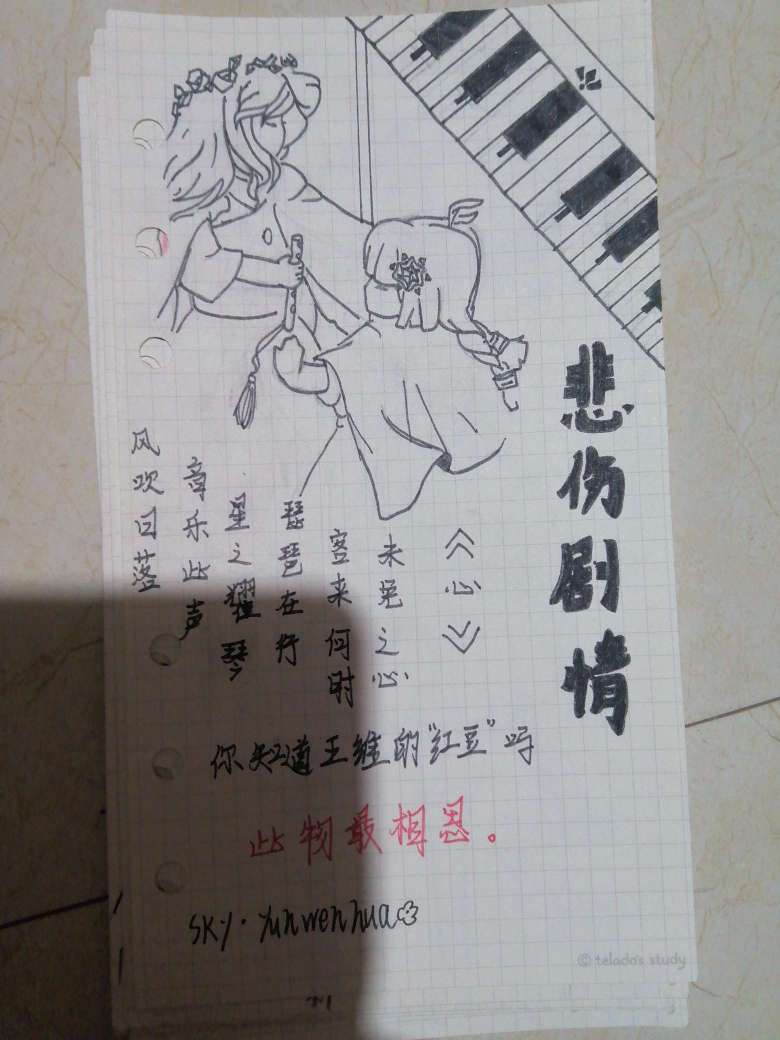 悲伤剧情
《心》
未免之心
客来何时
琵琶在行
星之耀琴
音乐此声
风吹日落
你知道王维的"红豆"吗
此物最相思。
SKY·Yunwenhua
© telado's study